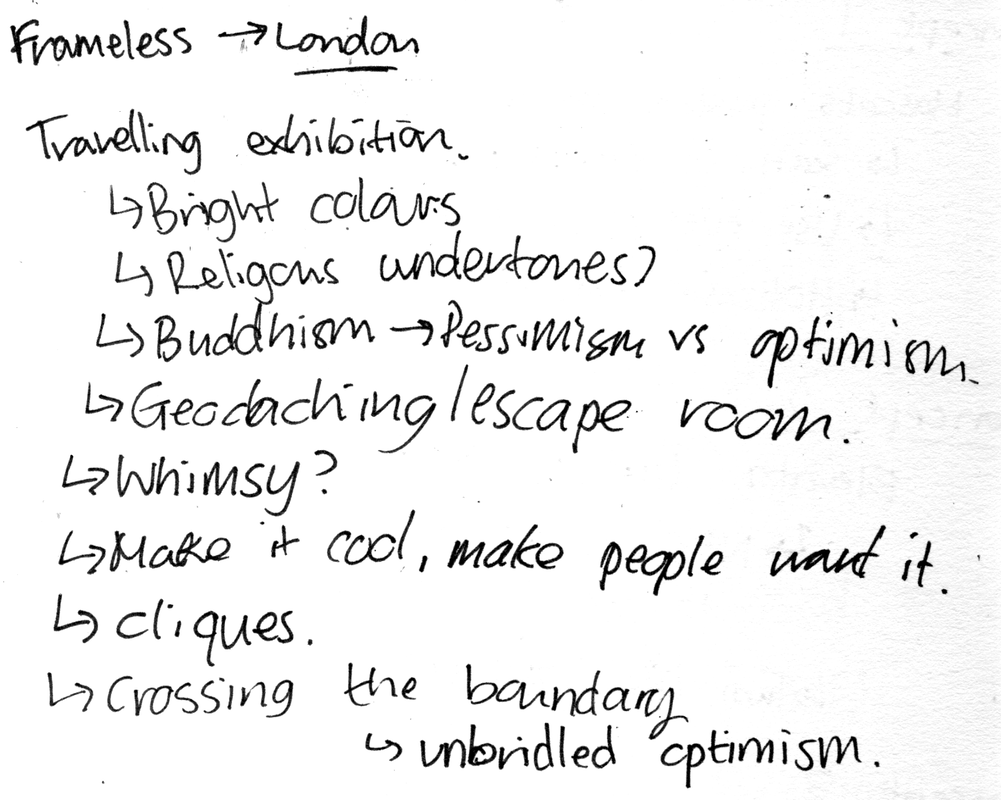 Frameless → London
Travelling exhibition.
↳ Bright colours
↳ Religous undertones?
↳ Buddhism → Pessimism vs optimism.
↳ Geocaching / escape room.
↳ Whimsy?
↳ Make it cool, make people want it.
↳ cliques.
↳ Crossing the boundary
↳ unbridled optimism.